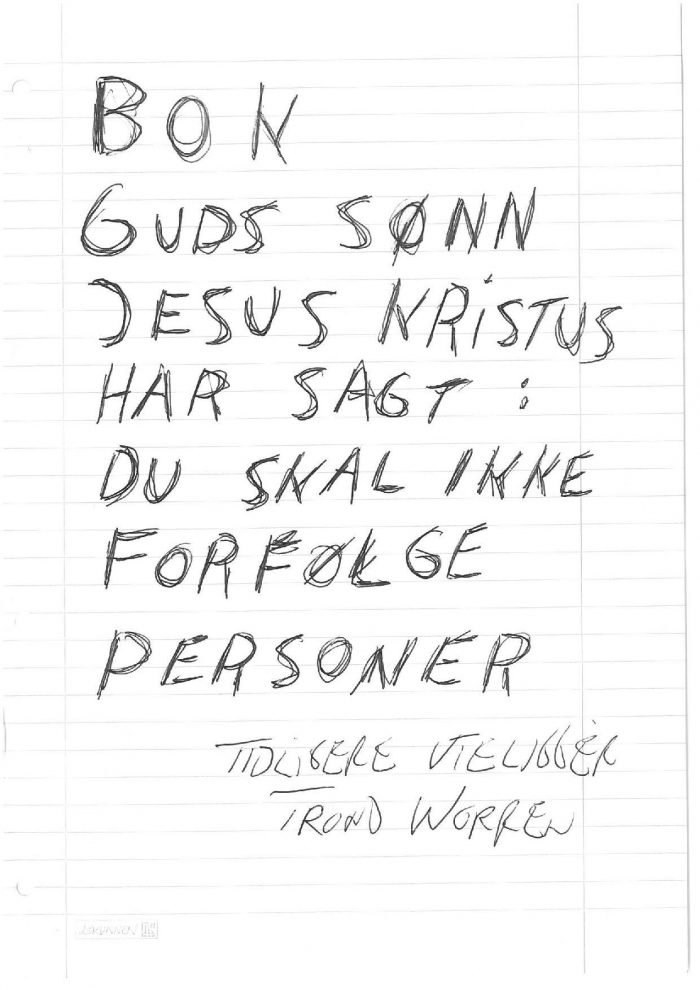 BOK
GUDS SØNN
JESUS KRISTUS
HAR SAGT :
DU SKAL IKKE
FORFØLGE
PERSONER
TIDLIGERE UTELIGGER
TROND WORREN